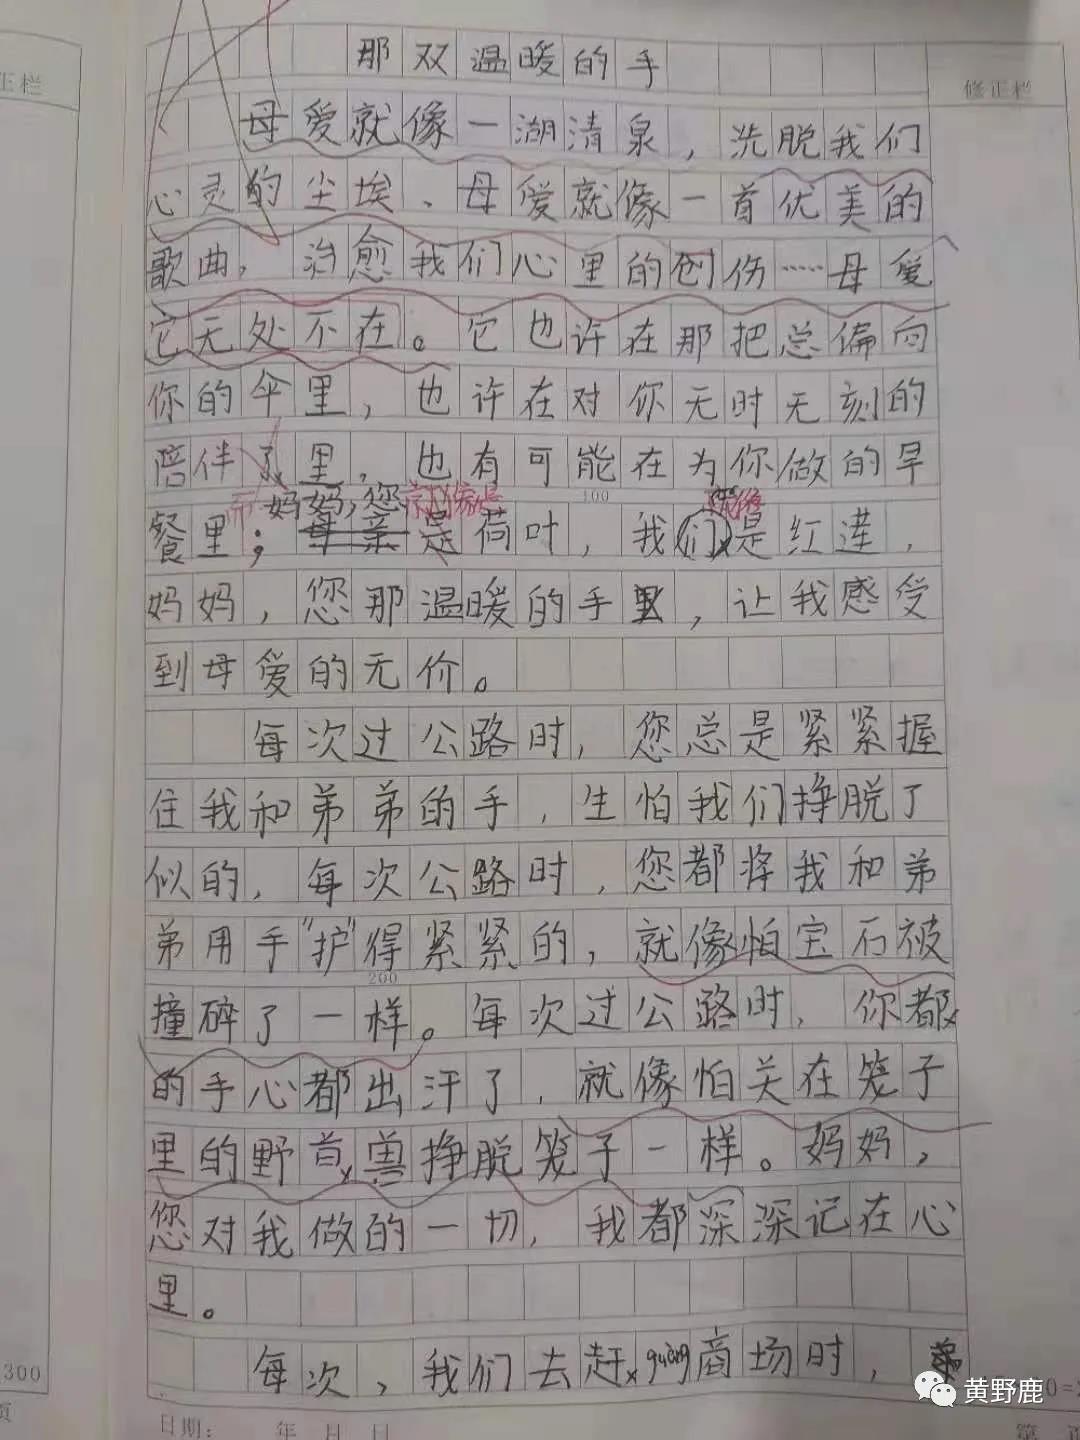 正栏
修正栏
那双温暖的手
母爱就像一湖清泉，洗脱我们
心灵的尘埃、母爱就像一首优美的
歌曲，治愈我们心里的创伤……母爱
它无处不在。它也许在那把总偏向
你的伞里，也许在对你无时无刻的
陪伴了里，也有可能在为你做的早
妈妈，您
100
餐里；母亲是荷叶，我们是红莲，
妈妈，您那温暖的手里，让我感受
到母爱的无价。
每次过公路时，您总是紧紧握
住我和弟弟的手，生怕我们挣脱了
似的，每次公路时，您都将我和弟
弟用手"护"得紧紧的，就像怕宝石被
200
撞碎了一样。每次过公路时，你都
的手心都出汗了，就像怕关在笼子
里的野首兽挣脱笼子一样。妈妈，
您对我做的一切，我都深深记在心
里。
每次，我们去赶guàng商场时，
300
黄野鹿
日期： 年 月 日